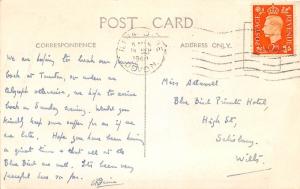 POST CARD
CORRESPONDENCE
ADDRESS ONLY.
POSTAGE REVENUE
We are hoping to leave our
back at Taunton, or unless we
telegraph otherwise, we hope to arrive
back on Sunday evening. Would you
kindly keep some supper for us if we
are late. Hope you have been having
a great time & that all at the
Blue Bird are well. It's been very
peaceful here so far.
Miss
Blue Bird Private Hotel,
High St,
Salisbury.
Wilts.